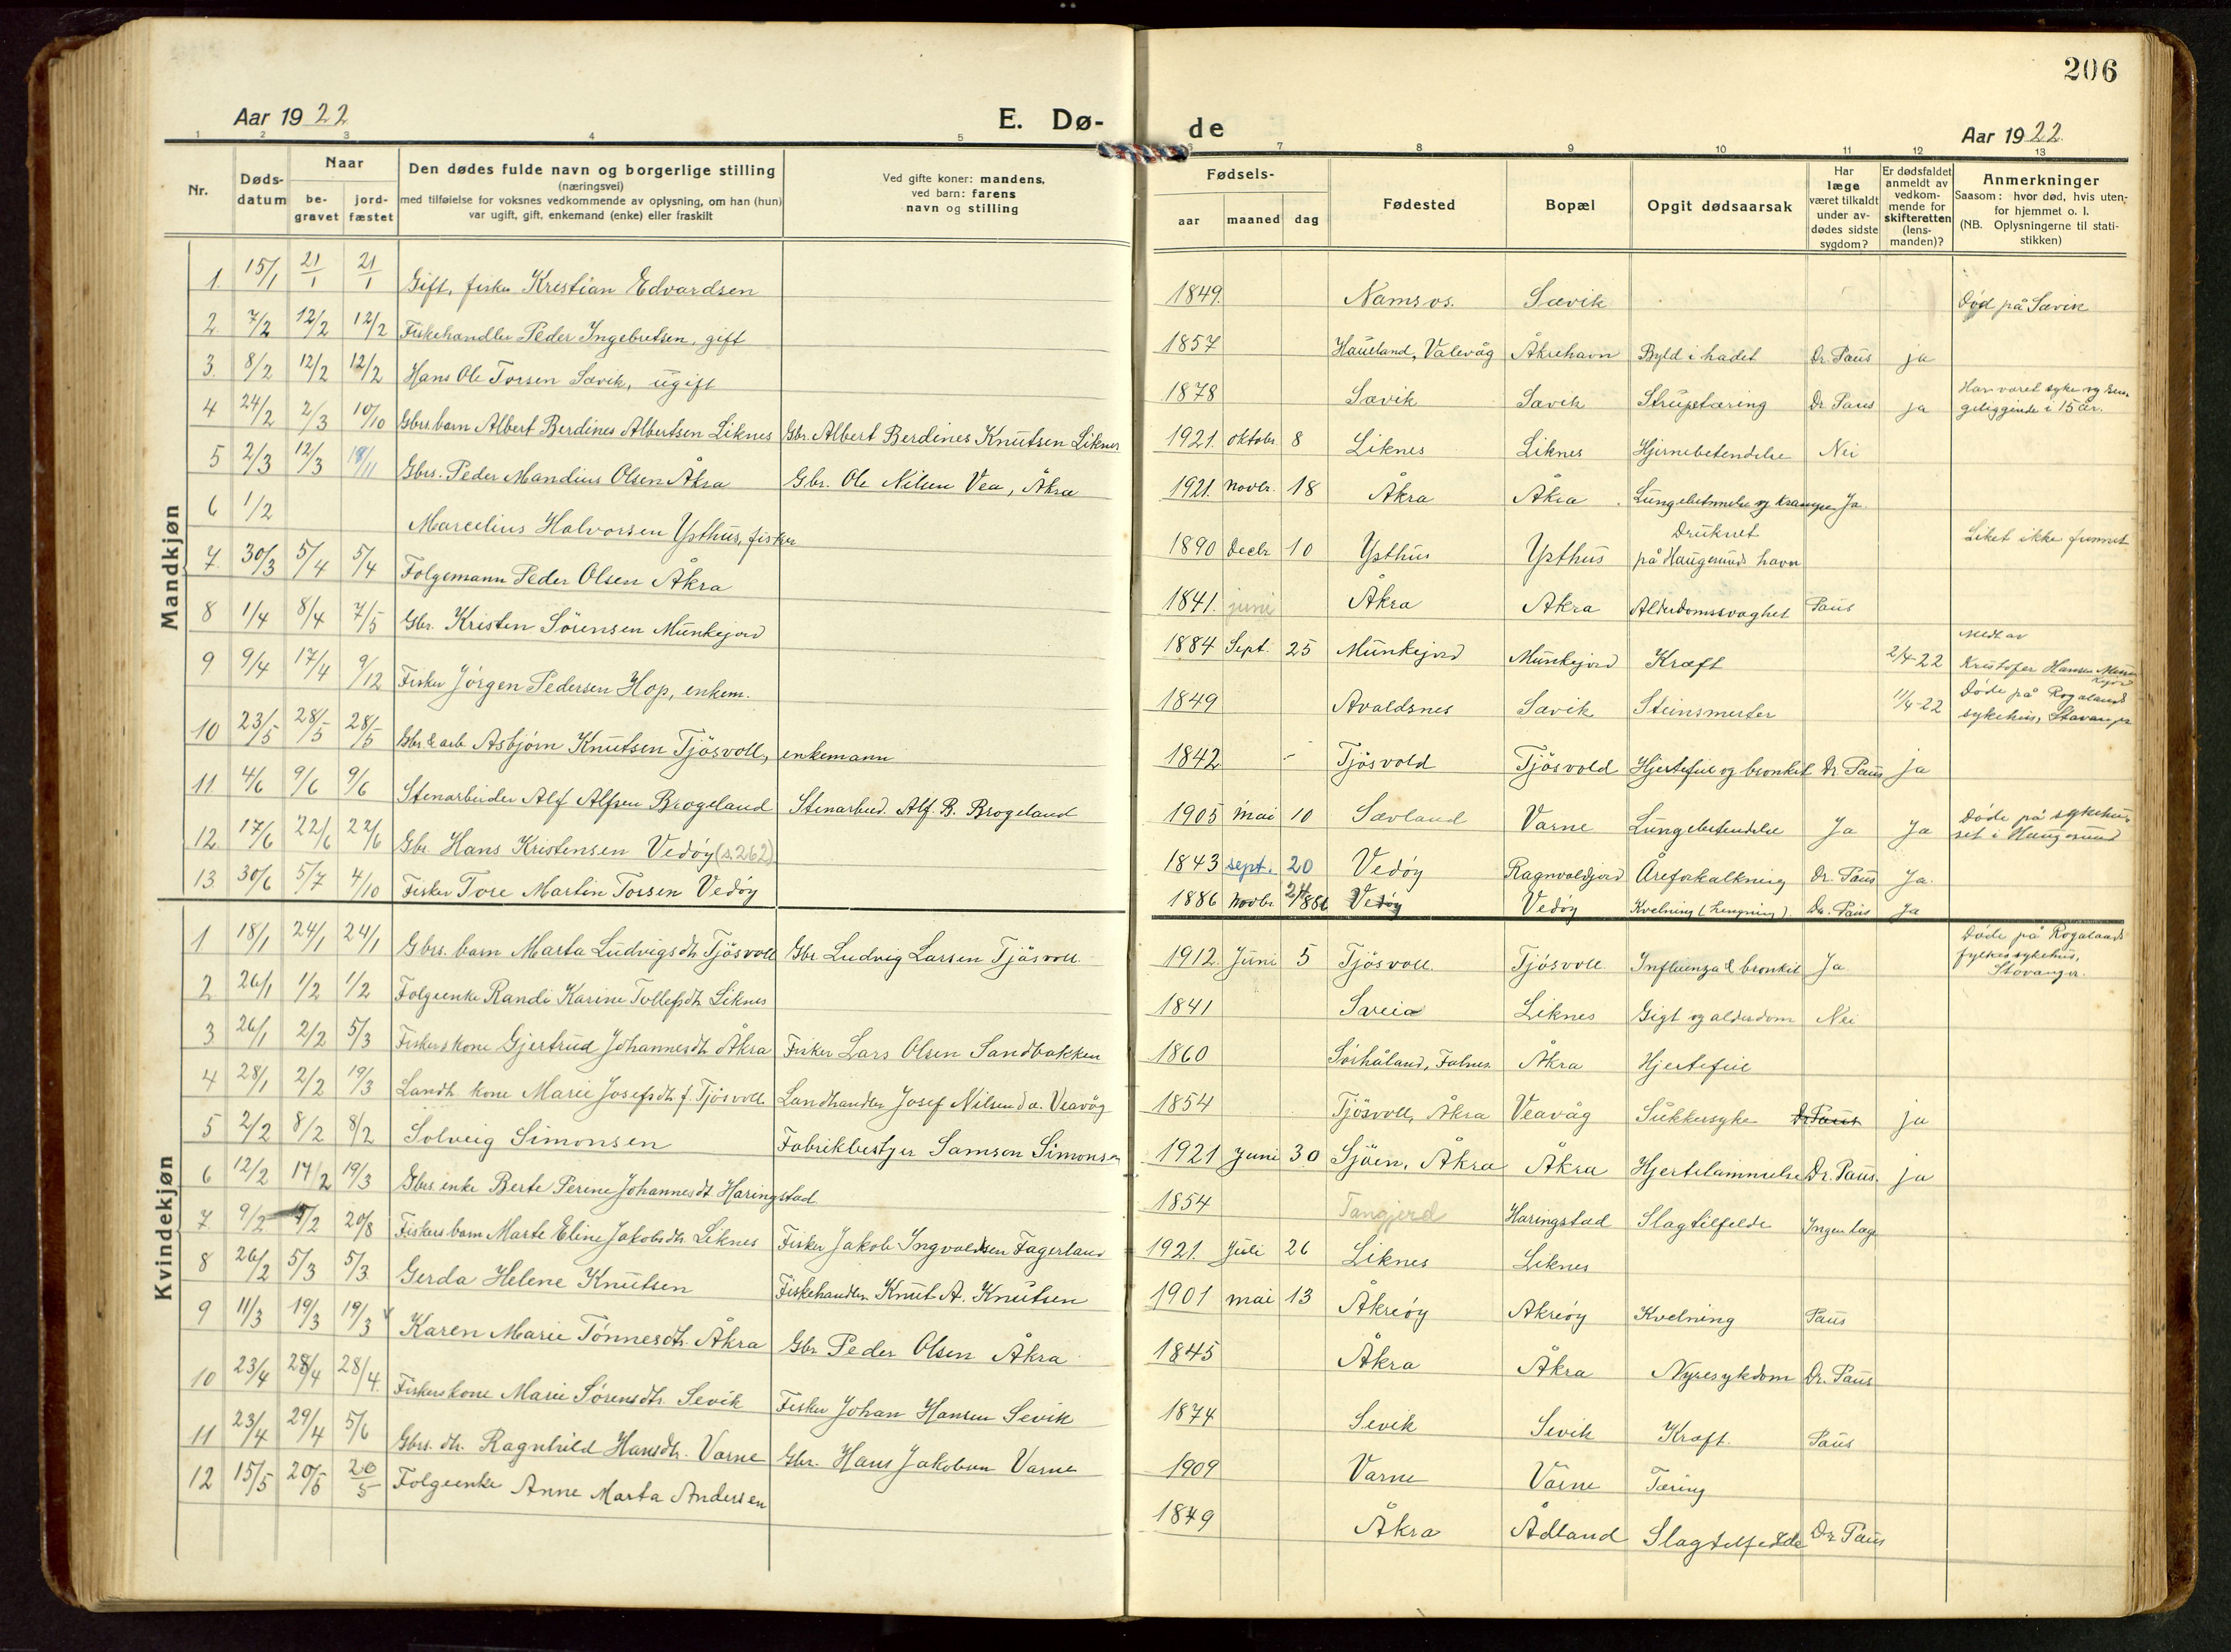 206
Aar 1922
E. Dø-
de
Aar 1922
1 2 3 4 5 6 7 8 9 10 11 12 13
Nr.
Døds-
datum
Naar
be-
gravet
jord-
fæstet
Den dødes fulde navn og borgerlige stilling
(næringsvei)
med tilføielse for voksnes vedkommende av oplysning, om han (hun)
var ugift, gift, enkemand (enke) eller fraskilt
Ved gifte koner: mandens,
ved barn: farens
navn og stilling
Fødsels-
aar maaned dag
Fødested
Bopæl
Opgit dødsaarsak
Har
læge
været tilkaldt
under av-
dødes sidste
sygdom?
Er dødsfaldet
anmeldt av
vedkom-
mende for
skifteretten
(lens-
manden)?
Anmerkninger
Saasom: hvor død, hvis uten-
for hjemmet o. l.
(NB. Oplysningerne til stati-
stikken)
Mandkjøn
1. 15/1 21/1 21/1 Gift, fisker Kristian Edvardsen 1849. Namsos. Sævik Død på Sævik
2 7/2 12/2 12/2 Fiskehandler Peder Ingebretsen, gift 1857 Haueland, Valevåg Åkrehavn Byld i hodet Dr. Paus ja
3. 8/2 12/2 12/2 Hans Ole Torsen Sævik, ugift 1878 Sævik Sævik Struptæring Dr Paus ja Har været syke og sen-
geliggende i 15 år.
4 24/2 2/3 10/10 Gbrs. barn Albert Berdines Albertsen Liknes Gbr. Albert Berdines Knutsen Liknes 1921. oktobr. 8 Liknes Liknes Hjernebetendelse Nei
5 2/3 12/3 18/11 Gbrs. Peder Mandius Olsen Åkra Gbr. Ole Nilsen Vea, Åkra 1921. novbr. 18 Åkra Åkra Lungebetennelse og krampe Ja.
6 1/2 Marcelius Halvorsen Ysthus, fisker 1890 Decbr 10 Ysthus Ysthus Druknet
på Haugesunds havn Liket ikke funnet
7. 30/3 5/4 5/4 Folgemann Peder Olsen Åkra 1841. juni Åkra Åkra Alderdomssvaghet Paus
8 1/4 8/4 7/5 Gbr. Kristen Sörensen Munkejord 1884 Sept. 25 Munkejord Munkejord Kræft 2/4-22 Meldt av
Kristofer Hansen Munkejord
9 9/4 17/4 9/12 Fisker Jörgen Pedersen Hop, enkem. 1849 Avaldsnes Sævik Steinsmerter 11/4-22 Døde på Rogalands
sykehus, Stavanger
10 23/5 28/5 28/5 Gbr & arb Asbjørn Knutsen Tjösvoll, enkemann 1842 - Tjösvold Tjösvold Hjertefeil og bronkit Dr. Paus ja
11. 4/6 9/6 9/6 Stenarbeider Alf Alfsen Brogeland Stenarbeid. Alf. B. Brogeland 1905 mai 10 Sævland Varne Lungebetendelse Ja Ja Døde på sykehu-
set i Haugesund
12. 17/6 22/6 22/6 Gbr. Hans Kristensen Vedöy (s. 262) 1843 sept. 20 Vedöy Ragnvaldjord Åreforkalkning Dr. Paus Ja.
13. 30/6 5/7 4/10 Fisker Tore Martin Torsen Vedöy 1886 Novbr Vedöy Vedöy Kvelning (hengning). Dr. Paus Ja
Kvindekjøn
1 18/1 24/1 24/1 Gbrs. barn Marta Ludvigsdtr Tjösvoll Gbr Ludvig Larsen Tjösvoll. 1912. Juni 5 Tjösvoll. Tjösvoll Influenza & bronkit Ja Døde på Rogalands
fylkessykehus,
Stavanger.
2. 26/1 1/2 1/2 Folgeenke Randi Karine Tollefsdtr Liknes 1841 Sreia Liknes Gigt og alderdom Nei
3 26/1 2/2 5/3 Fiskerskone Gjertrud Johannesdtr. Åkra Fisker Lars Olsen Sandbakken 1860 Sörhåland, Falnes. Åkra Hjertefeil
4 28/1 2/2 19/3 Landh. kone Marie Josefsdtr f. Tjösvoll Landhandler Josef Nilsen d.a. Veavåg 1854 Tjösvoll, Åkra Veavåg Sukkersyke Dr Paus ja
5 2/2 8/2 8/2 Solveig Simonsen Fabrikbestyrer Samson Simonsen 1921 Juni 30 Sjöen, Åkra Åkra Hjertelammelse Dr. Paus. ja
6 12/2 17/2 19/3 Gbrs. enke Berte Serine Johannesdt Haringstad 1854 Tangjerd Haringstad Slagtilfelde Ingen læge
7. 9/2 20/8 Fiskers barn Marte Eline Jakobsdtr. Liknes Fisker Jakob Ingvaldsen Fagerland 1921. Juli 26 Liknes Liknes
8 26/2 5/3 5/3 Gerda Helene Knutsen Fiskehandler Knut A. Knutsen 1901 mai 13 Åkreöy Åkreöy Kvelning Paus
9 11/3 19/3 19/3 Karen Marie Tönnesdtr. Åkra Gbr Peder Olsen Åkra 1845 Åkra Åkra Nyresykdom Dr. Paus
10 23/4 28/4 28/4. Fiskers kone Marie Sörensdtr. Sevik Fisker Johan Hansen Sevik 1874 Sevik Sevik Kræft. Paus
11 23/4 29/4 5/6 Gbrs. dtr. Ragnhild Hansdtr. Varne Gbr. Hans Jakobsen Varne 1909 Varne Varne Tæring
12 15/5 20/5 20/5 Folgeenke Anne Marta Andersen 1849 Åkra Ådland Slagtilfelde Dr Paus